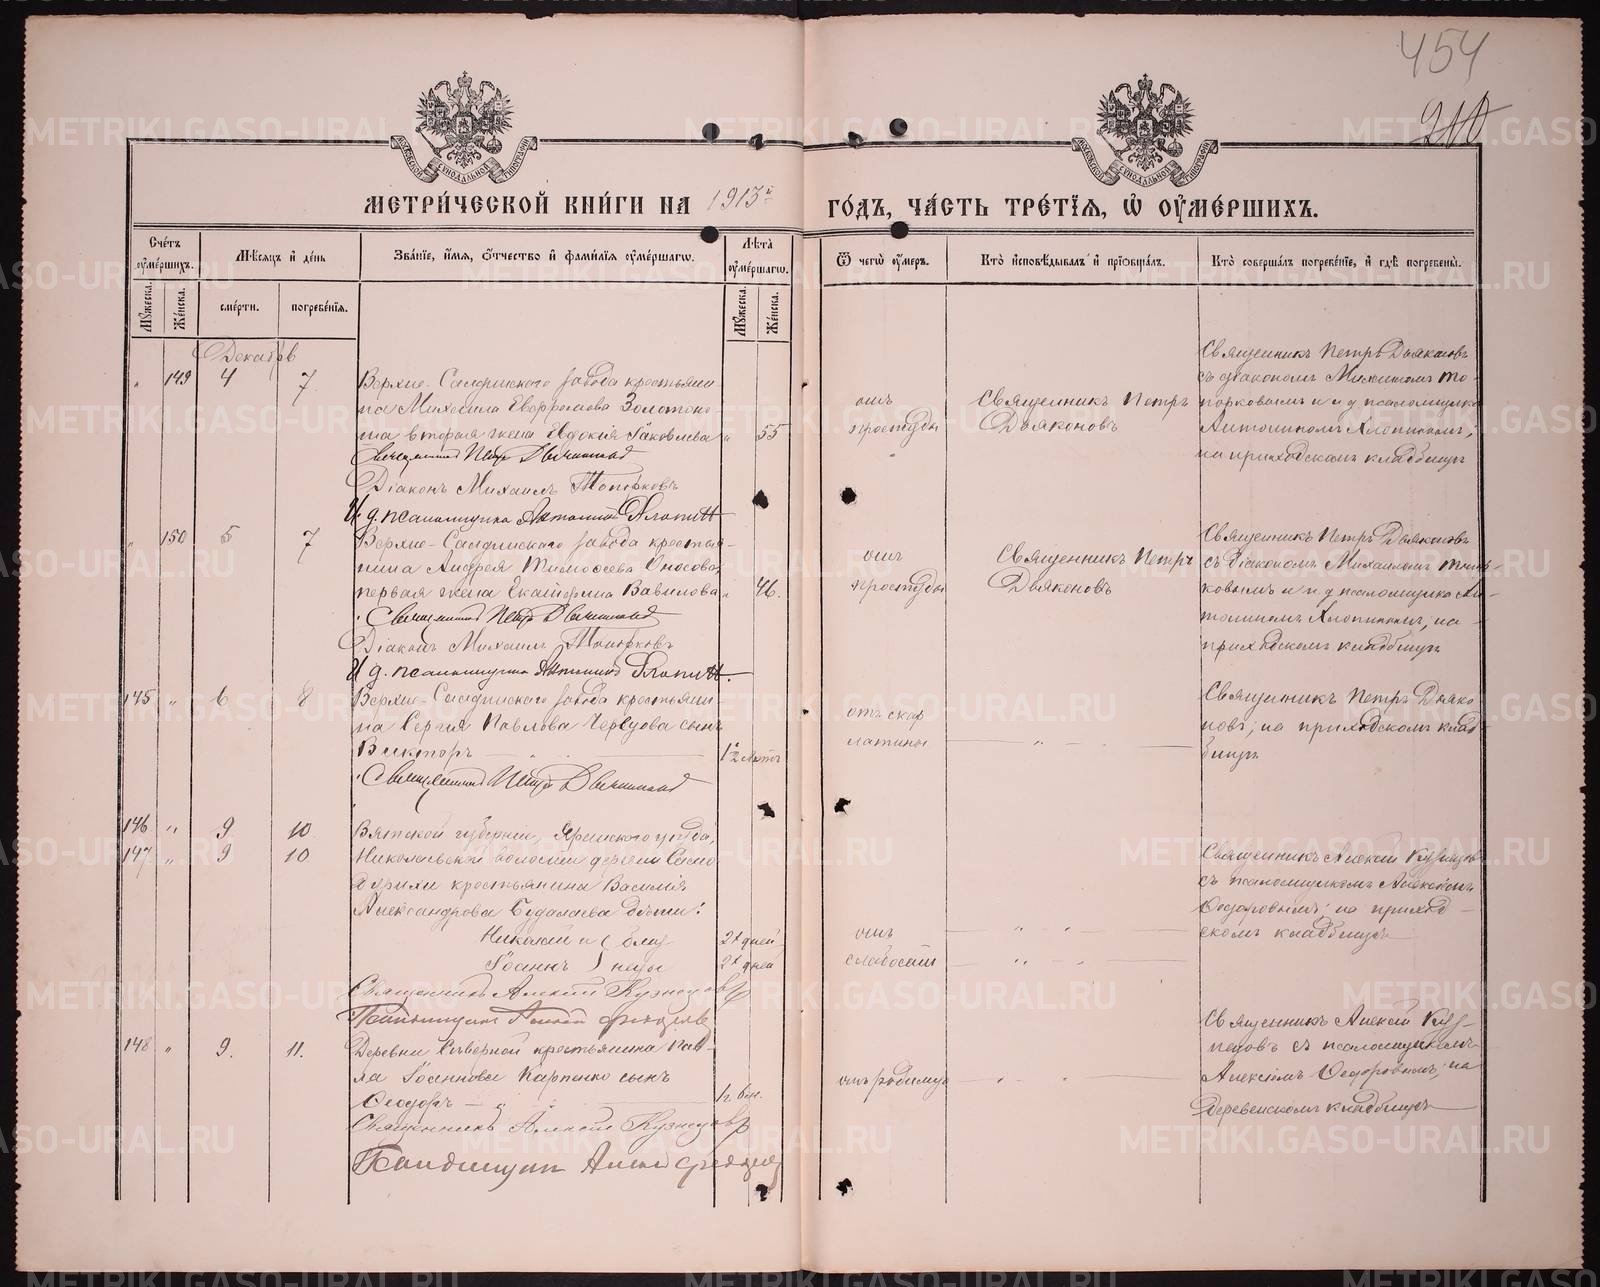 454
210
МЕТРИ́ЧЕСКОЙ КНИ́ГИ НА 1913й ГО́ДЪ, ЧА́СТЬ ТРЕ́ТІѦ, Ѡ ОУМЕ́РШИХЪ.
Сче́тъ оумéршихъ.
Мѣ́сѧцъ и дéнь
Звáнїе, и́мѧ, ѻ́тчество и фамѝлїѧ оумéршагѡ.
Лѣ́та оумéршагѡ.
Ѿ чегѡ̀ оу́меръ.
Кто̀ и҆сповѣ́дывалъ и҆ прїѡбща́лъ.
Кто̀ соверша́лъ погребе́нїе, и҆ гдѣ̀ погребены̀.
Мꙋ́жеска.
Же́нска.
сме́рти.
погребе́нїѧ.
Мꙋ́жеска.
Же́нска.
Декабрь
" 149 4 7
Верхне-Салдинского завода крестьяни-
на Михаила Евфремова Золотоно-
та вторая жена Евдокія Яковлева " 55
Священник Петр Дьяконов
Діаконъ Михаилъ Топорковъ
И д. псаломщика Антоний Хлопин
отъ
простуды
Священникъ Петръ
Дьяконовъ
Священникъ Петръ Дьяконовъ
съ діакономъ Михаиломъ То-
порковымъ и и д псаломщика
Антониномъ Хлопинымъ;
на приходскомъ кладбищѣ
" 150 5 7
Верхне-Салдинского завода крестья-
нина Андрея Тимофеева Оносова,
первая жена Екатерина Вавилова " 46.
Священник Петр Дьяконов
Діаконъ Михаилъ Топорковъ
И д. псаломщика Антоний Хлопин.
отъ
простуды
Священникъ Петръ
Дьяконовъ
Священникъ Петръ Дьяконовъ
съ діакономъ Михаиломъ Топор-
ковымъ и и д псаломщика Ан-
тониномъ Хлопинымъ; на
приходскомъ кладбищѣ
145 " 6 8
Верхне-Салдинского завода крестьяни-
на Сергія Павлова сынъ
Викторъ 1 1/2 лѣтъ
Священник Петр Дьяконов
отъ скар
латины
"
Священникъ Петръ Дьяко
новъ; на приходскомъ клад-
бищѣ
146 " 9 10
147 " 9 10
Вятской губерніи, Яранского уѣзда,
Николаевской волости деревни
крестьянина Василія
Александрова дѣти:
Николай и близ 21 дней
Іоаннъ нецы 21 дней
Священникъ Алексій Кузнецовъ
Псаломщик Алексей Феодоров
отъ
слабости
" "
" "
Священникъ Алексій Кузнецовъ
съ псаломщикомъ Алексіемъ
Ѳеодоровымъ; на приход-
скомъ кладбищѣ
148 " 9. 11.
Деревни Сѣверной крестьянина Пав-
ла Іоаннова Карпенко сынъ
Ѳеодоръ — " 1 г. 6 м.
Священникъ Алексій Кузнецовъ
Псаломщик Алексей Феодоров
отъ родимца
" "
Священникъ Алексій Куз-
нецовъ съ псаломщикомъ
Алексіемъ Ѳеодоровымъ; на
деревенскомъ кладбищѣ